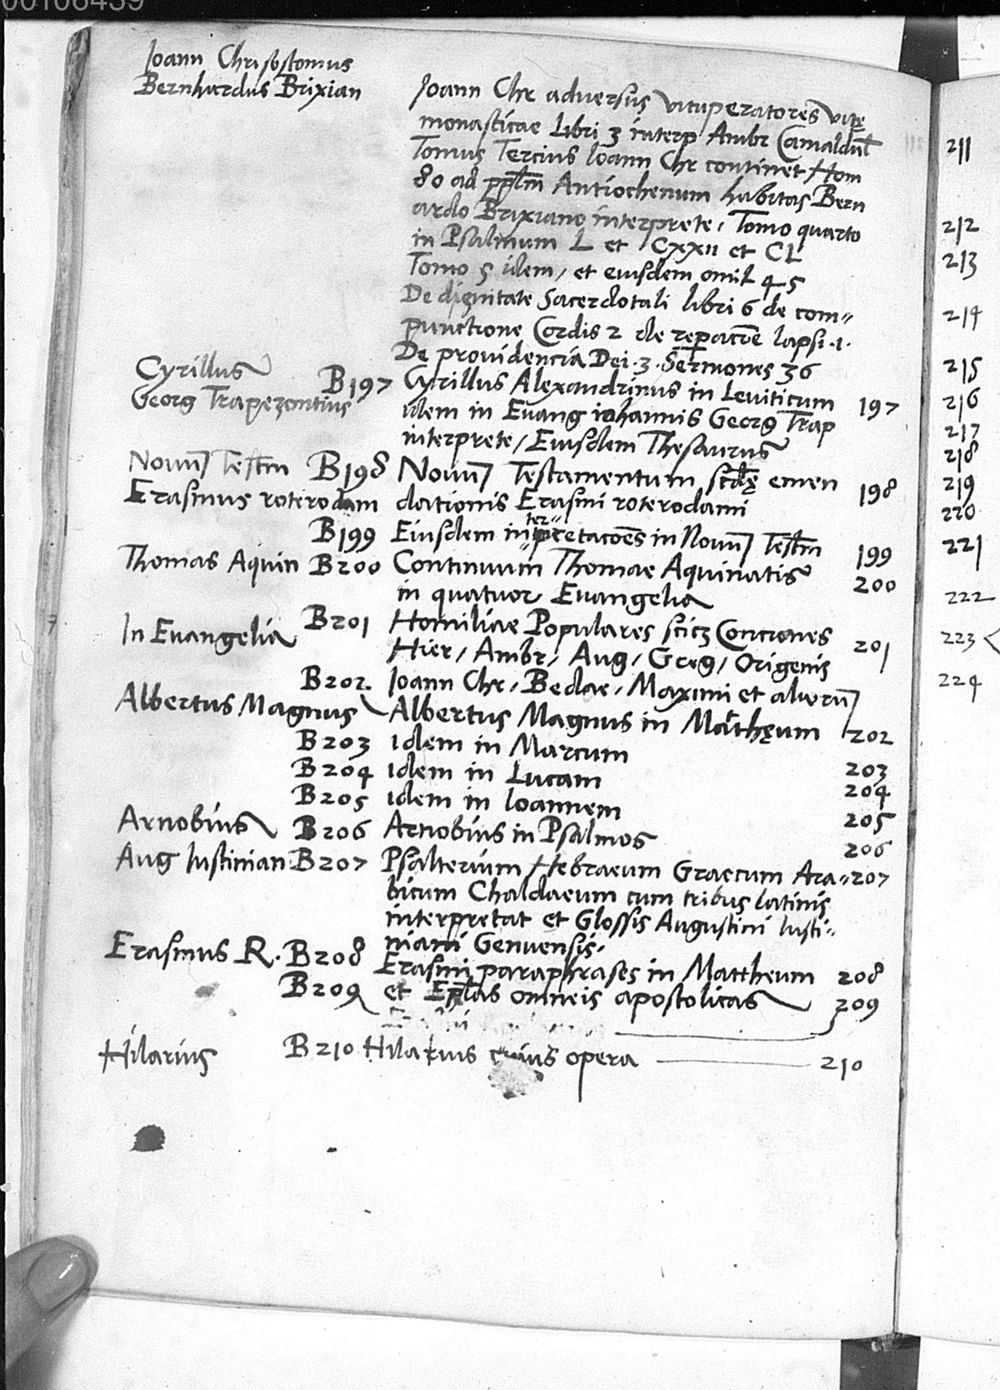 00108439
Joann Chrisostomus
Bernhardus Brixian
Joann Chr adversus vituperatores vitę
monasticae libri 3 interp Ambr Camaldul
Tomus Tercius Ioann Chr continet Hom
80 ad pplm Antiochenum habitas Bern
ardo Brixiano interprete, Tomo quarto
in Psalmum L et CXXII et CL
Tomo 5 idem, et eiusdem omil 45
De dignitate Sacerdotali libri 6 de com„
punctione Cordis 2 de reparacõe lapsi .1.
De providencia Dei .3. Sermones 36
Cyrillus B197 Cyrillus Alexandrinus in Leviticum 197
Georg Trapezontius idem in Evang iohannis Georg Trap
interprete, Eiusdem Thesaurus
Novum Testm B198 Novum Testamentum, scdę emen 198
Erasmus roterodam dationis Erasmi roterodami
B199 Eiusdem interpretacões in Novum Testm 199
Thomas Aquin B200 Continuum Thomae Aquinatis 200
in quatuor Evangelia
In Evangelia B201 Homiliae Populares scicz Conciones 201
Hier, Ambr, Aug, Greg, Origenis
Joann Chr, Bedae, Maximi et aliorum
Albertus Magnus B202. Albertus Magnus in Mathęum 202
B203 idem in Marcum 203
B204 idem in Lucam 204
B205 idem in Ioannem 205
Arnobius B206 Arnobius in Psalmos 206
Aug Iustinian B207 Psalterium Hebraeum Graecum Ara„ 207
bicum Chaldaeum cum tribus latinis
interpretat et Glossis Augustini Iusti„
niani Genuensis.
Erasmus R. B208 Erasmi paraphrases in Mattheum 208
B209 et Eplas omneis apostolicas 209
Hilarius B210 Hilarius opera 210
211
212
213
214
215
216
217
218
219
220
221
222
223
224